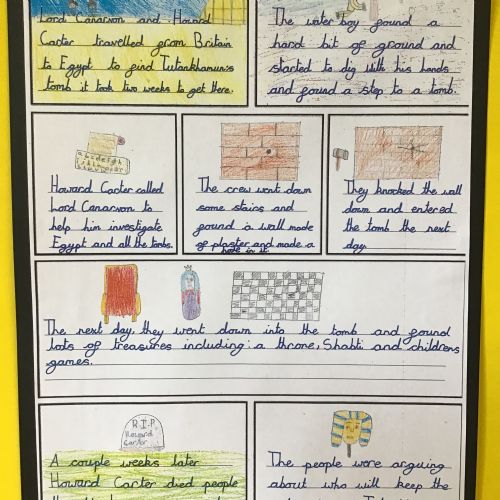 Lord Canarvon and Howard
Carter travelled from Britain
to Egypt to find Tutankhamun's
tomb it took two weeks to get there.
The water boy found a
hard bit of ground and
started to dig with his hands
and found a step to a tomb.
Howard Carter called
Lord Canarvon to
help him investigate
Egypt and all the tombs.
The crew went down
some stairs and
found a wall made
of plaster and made a
hole in it.
They knocked the wall
down and entered
the tomb the next
day.
The next day, they went down into the tomb and found
lots of treasures including: a throne, Shabti and childrens
games.
R.I.P
Howard
Carter
A couple weeks later
Howard Carter died people
The people were arguing
about who will keep the